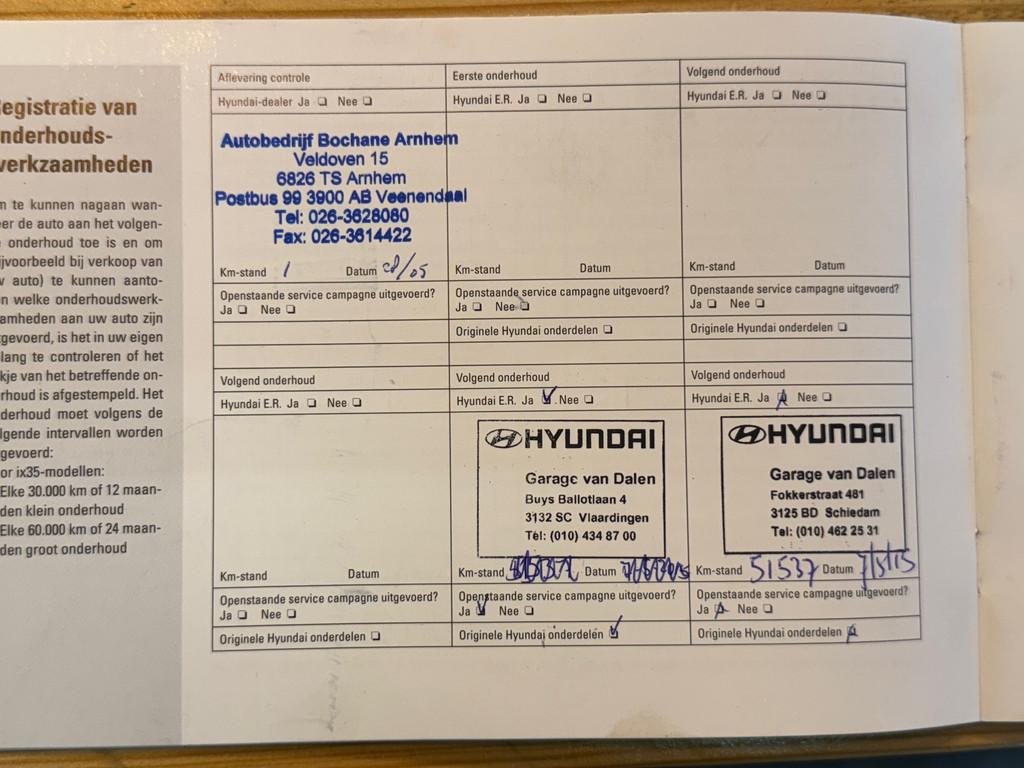 egistratie van
nderhouds-
verkzaamheden
n te kunnen nagaan wan-
er de auto aan het volgen-
onderhoud toe is en om
jvoorbeeld bij verkoop van
auto) te kunnen aanto-
n welke onderhoudswerk-
amheden aan uw auto zijn
tgevoerd, is het in uw eigen
lang te controleren of het
kje van het betreffende on-
rhoud is afgestempeld. Het
derhoud moet volgens de
lgende intervallen worden
gevoerd:
or ix35-modellen:
Elke 30.000 km of 12 maan-
den klein onderhoud
Elke 60.000 km of 24 maan-
den groot onderhoud
Aflevering controle
Hyundai-dealer Ja Nee
Autobedrijf Bochane Arnhem
Veldoven 15
6826 TS Arnhem
Postbus 99 3900 AB Veenendaal
Tel: 026-3628080
Fax: 026-3614422
Km-stand 1 Datum
Openstaande service campagne uitgevoerd?
Ja Nee
Eerste onderhoud
Hyundai E.R. Ja Nee
Km-stand Datum
Openstaande service campagne uitgevoerd?
Ja Nee
Originele Hyundai onderdelen
Volgend onderhoud
Hyundai E.R. Ja Nee
Km-stand Datum
Openstaande service campagne uitgevoerd?
Ja Nee
Originele Hyundai onderdelen
Volgend onderhoud
Hyundai E.R. Ja Nee
Km-stand Datum
Openstaande service campagne uitgevoerd?
Ja Nee
Originele Hyundai onderdelen
Volgend onderhoud
Hyundai E.R. Ja Nee
HYUNDAI
Garage van Dalen
Buys Ballotlaan 4
3132 SC Vlaardingen
Tel: (010) 434 87 00
Km-stand Datum
Openstaande service campagne uitgevoerd?
Ja Nee
Originele Hyundai onderdelen
Volgend onderhoud
Hyundai E.R. Ja Nee
HYUNDAI
Garage van Dalen
Fokkerstraat 481
3125 BD Schiedam
Tel: (010) 462 25 31
Km-stand 51537 Datum 7/5/15
Openstaande service campagne uitgevoerd?
Ja Nee
Originele Hyundai onderdelen